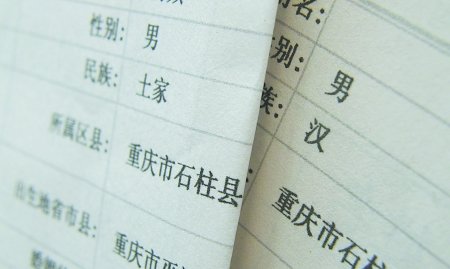 性别: 男
民族: 土家
所属区县: 重庆市石柱县
出生地省市县: 重庆市
名:
别: 男
族: 汉
重庆市石柱